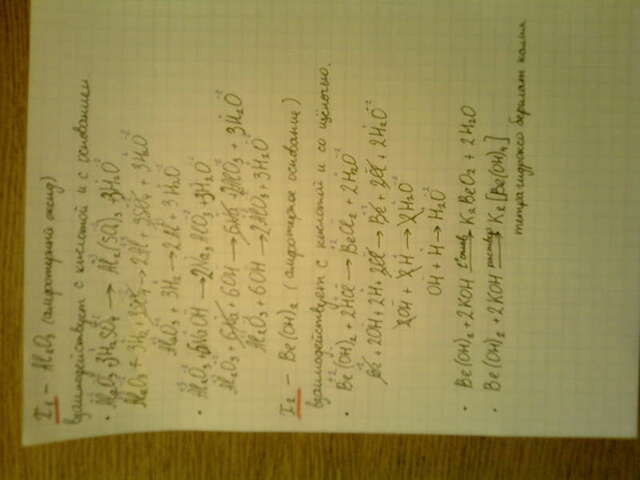 I₁ – Al₂O₃ (амфотерный оксид)
взаимодействует с кислотой и с основанием.
• Al₂O₃ + 3H₂SO₄ → Al₂(SO₄)₃ + 3H₂O
Al₂O₃ + 3H₂ + 3SO₄ → 2Al + 3SO₄ + 3H₂O
Al₂O₃ + 3H₂ → 2Al + 3H₂O
• Al₂O₃ + 6NaOH → 2Na₃AlO₃ + 3H₂O
Al₂O₃ + 6Na + 6OH → 6Na + 2AlO₃ + 3H₂O
Al₂O₃ + 6OH → 2AlO₃ + 3H₂O
I₂ – Be(OH)₂ (амфотерное основание)
взаимодействует с кислотой и со щёлочью.
• Be(OH)₂ + 2HCl → BeCl₂ + 2H₂O
Be + 2OH + 2H + 2Cl → Be + 2Cl + 2H₂O
2OH + 2H → 2H₂O
OH + H → H₂O
• Be(OH)₂ + 2KOH → K₂BeO₂ + 2H₂O
• Be(OH)₂ + 2KOH раствор → K₂[Be(OH)₄]
тетрагидроксо бериллат калия